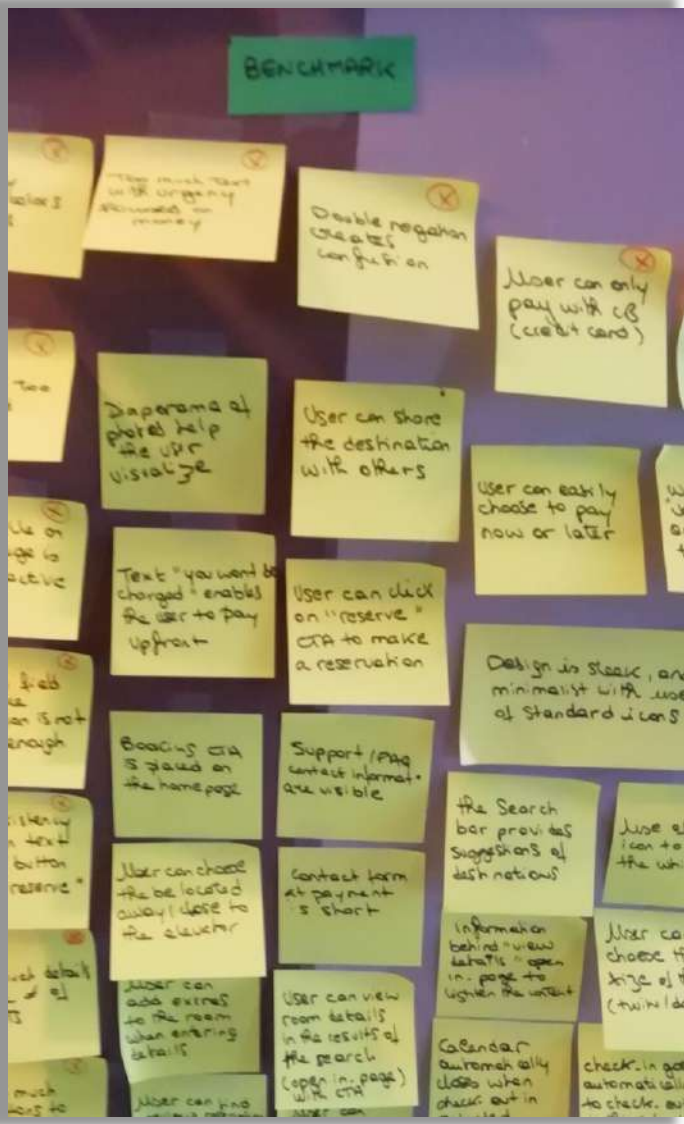 BENCHMARK
Too much text
with urgency
on
money
Double negation
creates
confusion
User can only
pay with CB
(credit card)
Too
Diaporama of
photos help
the user
visualize
User can share
the destination
with others
User can easily
choose to pay
now or later
Text "you wont be
charged" enables
the user to pay
upfront
User can click
on "reserve"
CTA to make
a reservation
Design is sleek, and
minimalist with use
of standard icons
field
is not
enough
Booking CTA
is placed on
the home page
Support / FAQ
contact informat°
are visible
the Search
bar provides
suggestions of
destinations
Use
icon to
the
text
button
reserve"
User can choose
the be located
away / close to
the elevator
Contact form
at payment
is short
Information
behind "view
details" open
in-page to
lighten the content
User
choose
size of
details
of
User can
add extras
to the room
when entering
details
User can view
room details
in the results of
the search
(open in-page)
with CTA
Calendar
automatically
closes when
check out in
check-in
to check-
much
User can find
User can